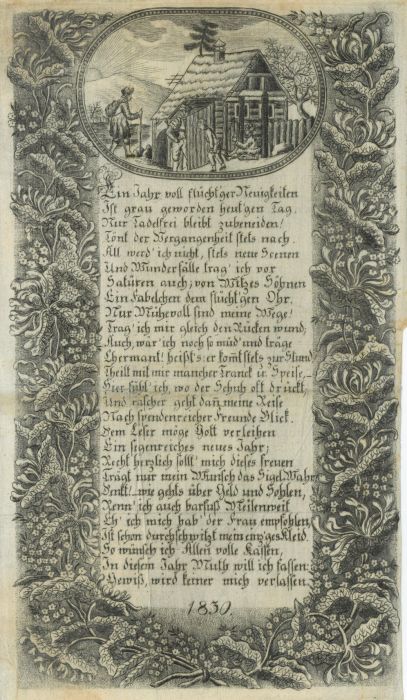 Ein Jahr voll flücht'ger Neuigkeiten
Ist grau geworden heut'gen Tag,
Nur Tadelfrei bleibt zubeneiden!
Tönt der Vergangenheit stets nach.
All werd' ich nicht, stets neue Scenen
Und Wunderfälle trag' ich vor
Satüren auch; von Witzes Söhnen
Ein Fabelchen dem flücht'gen Ohr.
Nur Mühevoll sind meine Wege!
Trag' ich mir gleich den Rücken wund;
Auch, wär' ich noch so müd' und träge
Ehermanl! heißt's: er kom̅t stets zur Stund
Theilt mit mir mancher Tranck u. Speise, —
Hier fühl' ich, wo der Schuh oft drückt,
Und rascher geht dan̅ meine Reise
Nach spendenreicher Freunde Blick.
Dem Leser möge Gott verleihen
Ein segenreiches neues Jahr;
Recht herzlich sollt' mich dieses freuen
Trägt nur mein Wunsch das Sigel Wahr
Denkt! — wie gehts über Geld und Sohlen,
Renn' ich auch barfuß Meilenweit
Eh' ich mich hab' der Frau empfohlen,
Ist schon durchschwitzt mein enz'ges Kleid.
So wünsch ich Allen volle Kassen,
In diesem Jahr Muth will ich fassen:
Gewiß, wird keiner mich verlassen
1830.